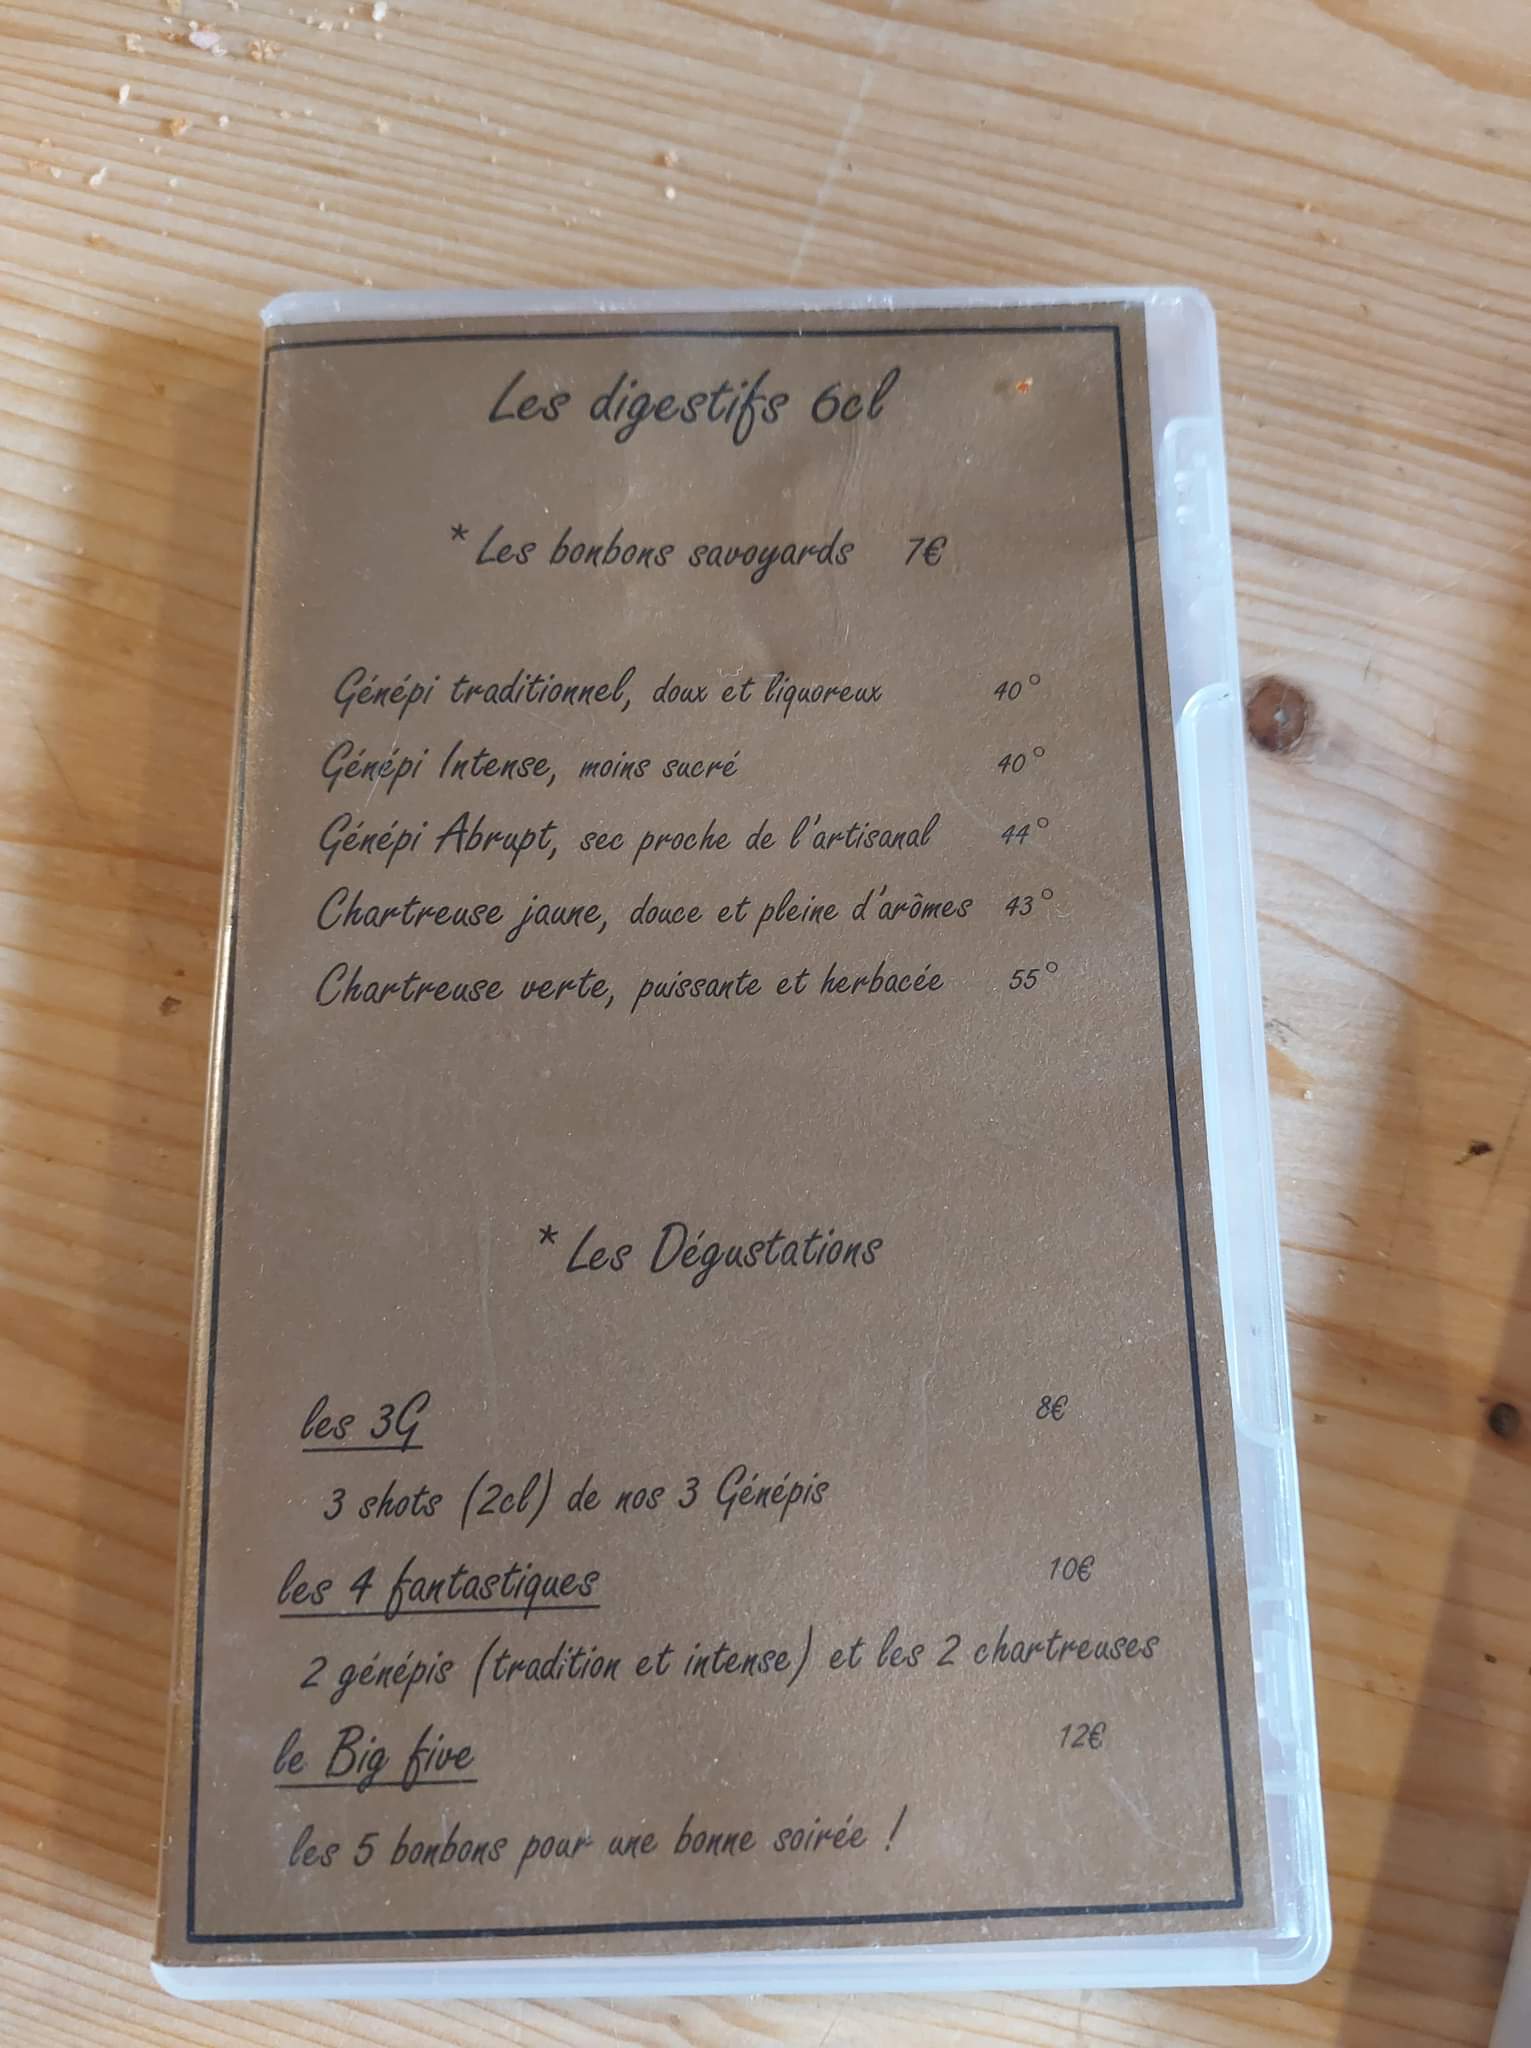 Les digestifs 6cl
* Les bonbons savoyards 7€
Génépi traditionnel, doux et liquoreux 40°
Génépi Intense, moins sucré 40°
Génépi Abrupt, sec proche de l'artisanal 44°
Chartreuse jaune, douce et pleine d'arômes 43°
Chartreuse verte, puissante et herbacée 55°
* Les Dégustations
les 3G 8€
3 shots (2cl) de nos 3 Génépis
les 4 fantastiques 10€
2 génépis (tradition et intense) et les 2 chartreuses
le Big five 12€
les 5 bonbons pour une bonne soirée !